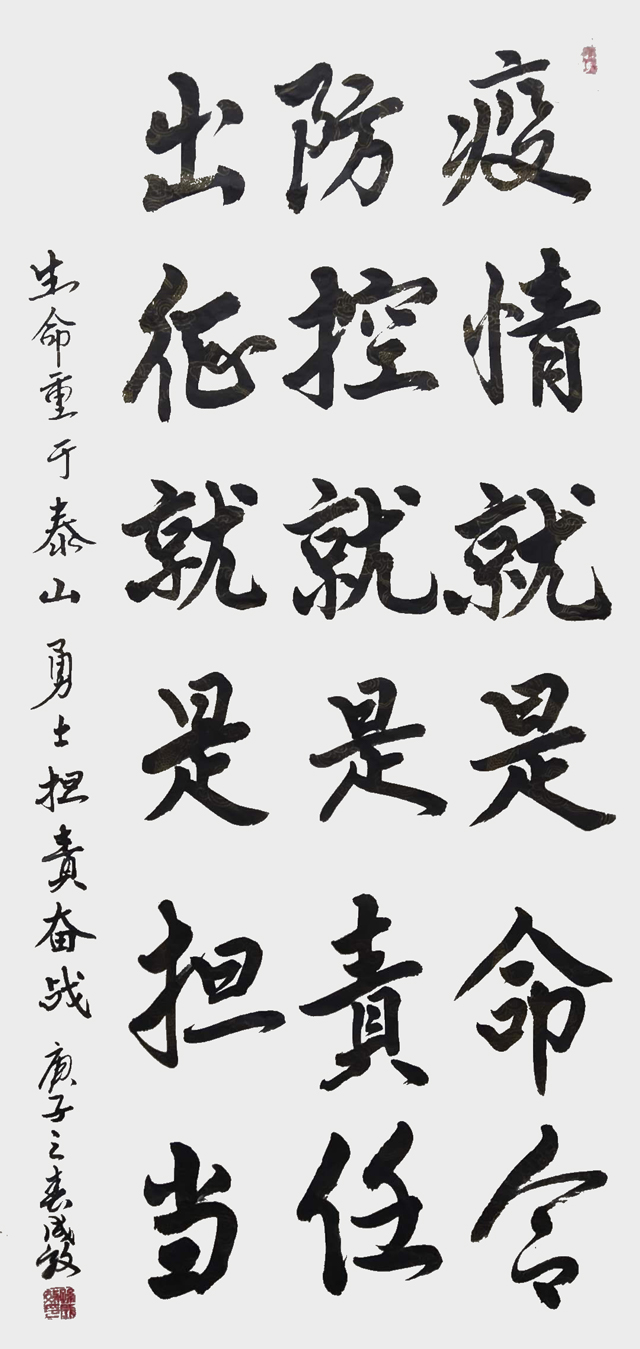 疫情就是命令
防控就是責任
出征就是担当
生命重于泰山勇士担責奋战庚子之春成敏